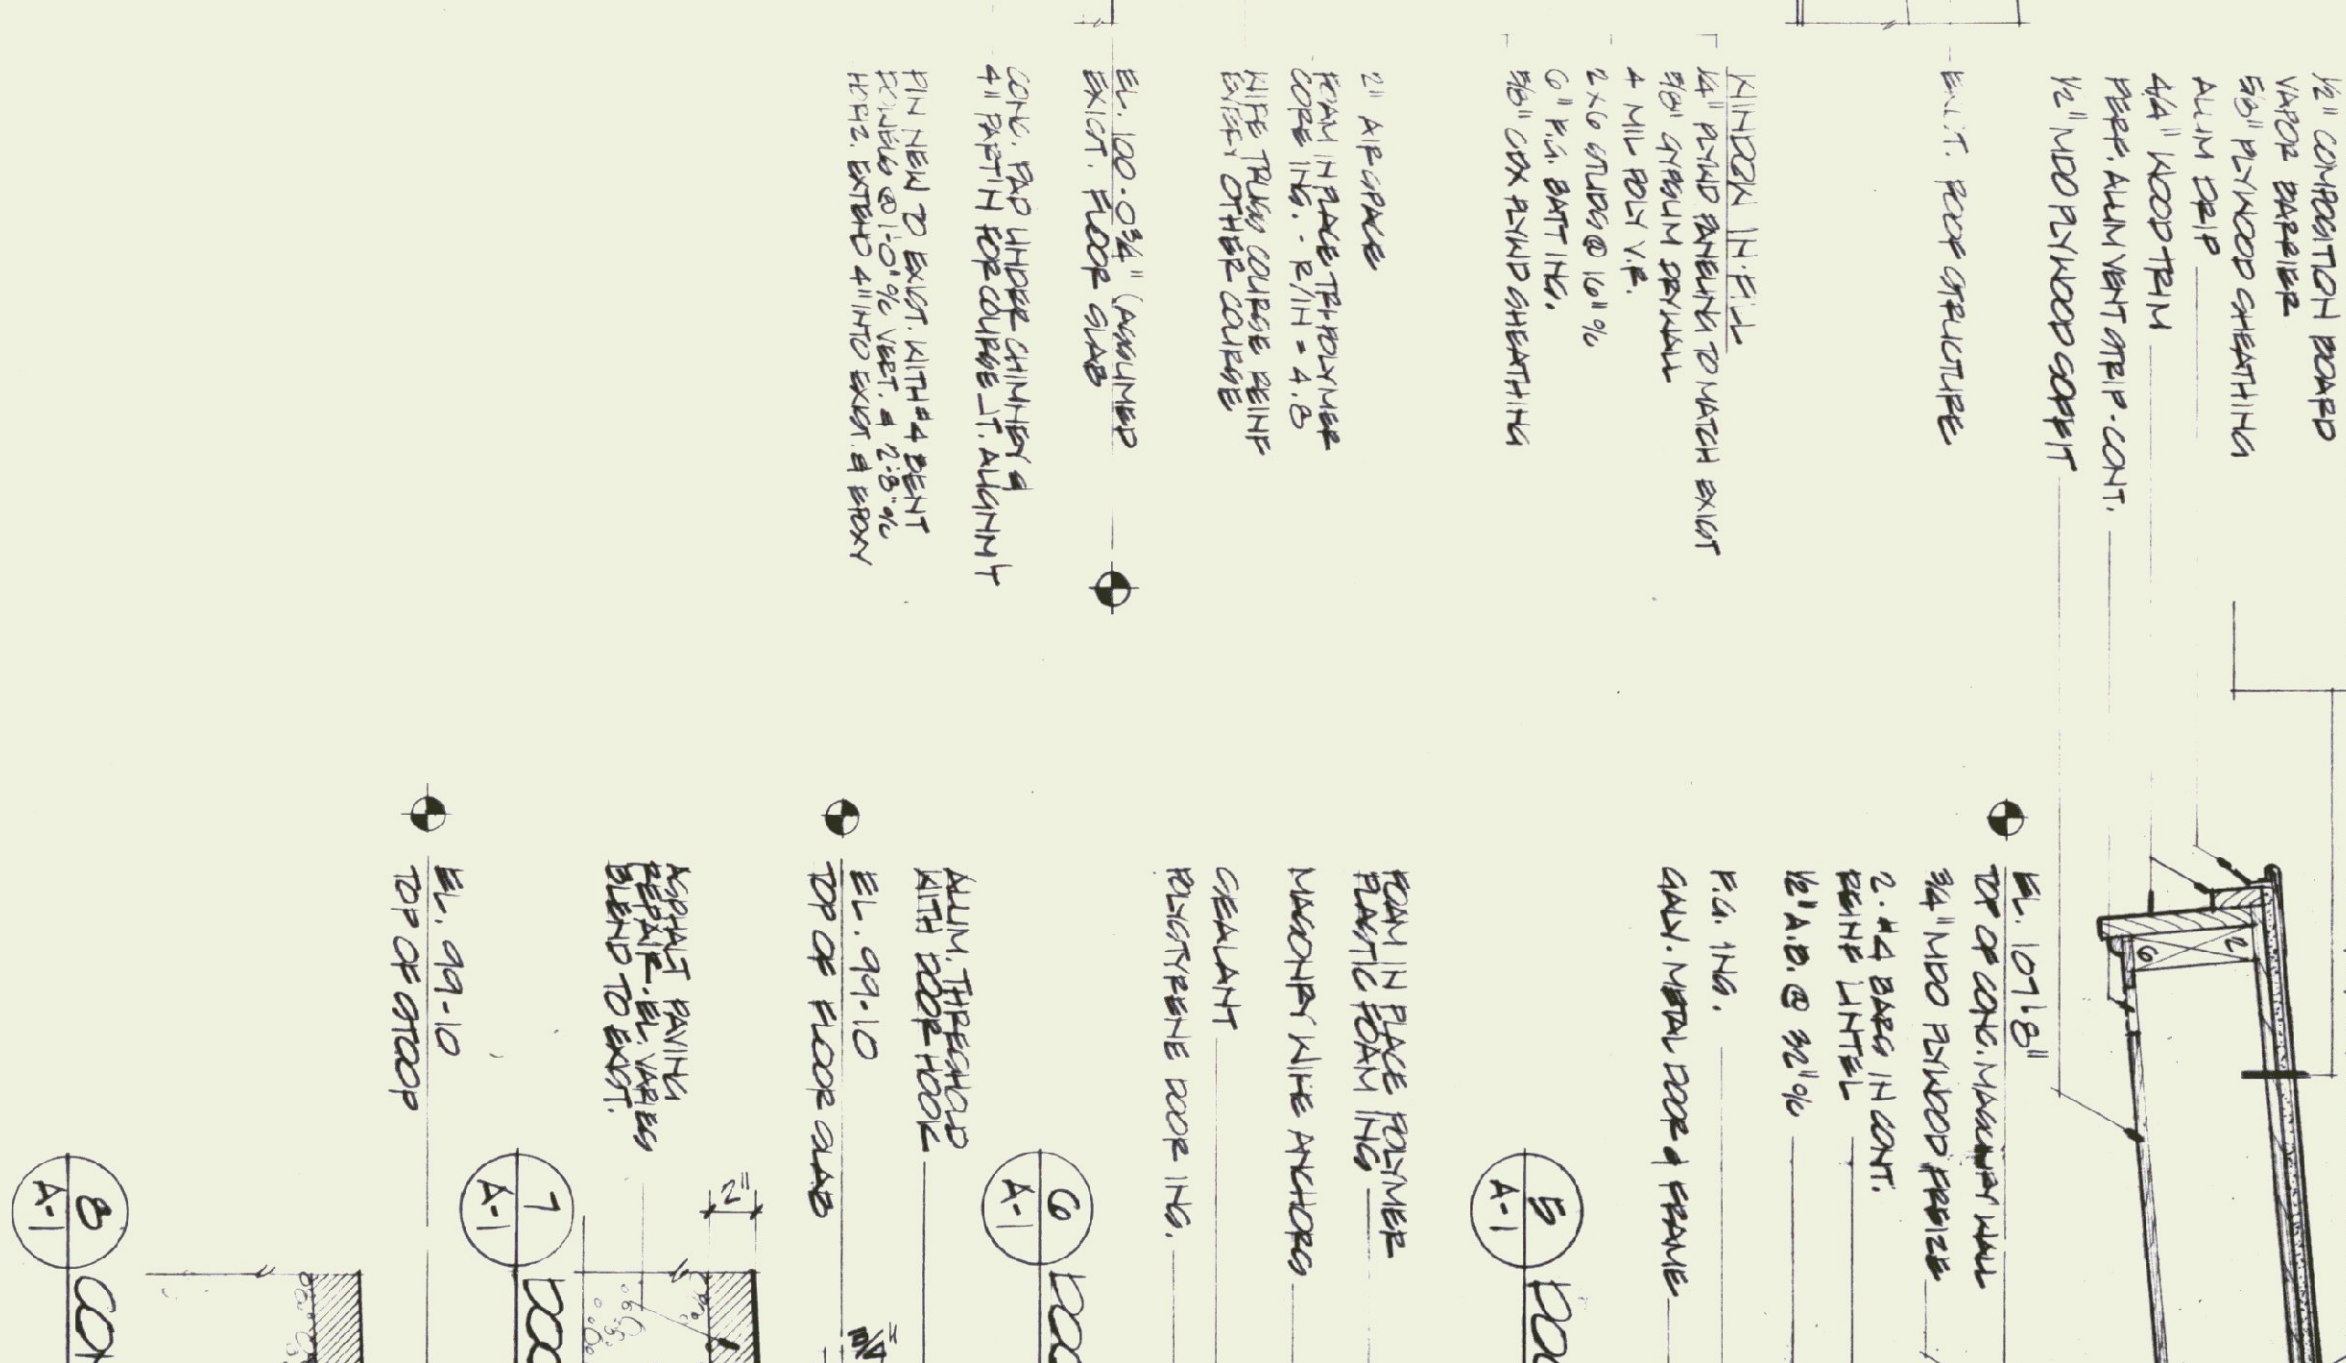 1/2" COMPOSITION BOARD
VAPOR BARRIER
5/8" PLYWOOD SHEATHING
ALUM DRIP
4/4" WOOD TRIM
PERF. ALUM VENT STRIP - CONT.
1/2" MDO PLYWOOD SOFFIT
EXIST. ROOF STRUCTURE
WINDOW INFILL
1/4" PLYWD PANELING TO MATCH EXIST
5/8" GYPSUM DRYWALL
4 MIL POLY V.B.
2x6 STUDS @ 16" %
6" F.G. BATT INS.
5/8" CDX PLYWD SHEATHING
2" AIR SPACE
FOAM IN PLACE TRIPOLYMER
CORE INS. - R/IN = 4.8
WIRE TRUSS COURSE REINF
EVERY OTHER COURSE
EL. 100-0 3/4" (ASSUMED
EXIST. FLOOR SLAB
CONC. PAD UNDER CHIMNEY &
4" PART'N FOR COURSE JT. ALIGNM'T
PIN NEW TO EXIST. WITH #4 BENT
DOWELS @ 1'-0" % VERT. & 2'-8" %
HORIZ. EXTEND 4" INTO EXIST. & EPOXY
2
6
EL. 107'-8"
TOP OF CONC. MASONRY WALL
3/4" MDO PLYWOOD FRIEZE
2 - #4 BARS IN CONT.
REINF LINTEL
1/2" A.B. @ 32" %
F.G. INS.
GALV. METAL DOOR & FRAME
5
A-1
DOO
FOAM IN PLACE POLYMER
PLASTIC FOAM INS
MASONRY WIRE ANCHORS
SEALANT
POLYSTYRENE DOOR INS.
6
A-1
DOO
ALUM. THRESHOLD
WITH DOOR HOOK
EL. 99-10
TOP OF FLOOR SLAB
ASPHALT PAVING
REPAIR - EL. VARIES
BLEND TO EXIST.
2"
7
A-1
DOO
EL. 99-10
TOP OF STOOP
8
A-1
CON